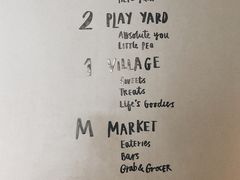 2 PLAY YARD
Absolute you
Little Pea
1 VILLAGE
Sweets
Treats
Life's Goodies
M MARKET
Eateries
Bars
Grab & Grocer